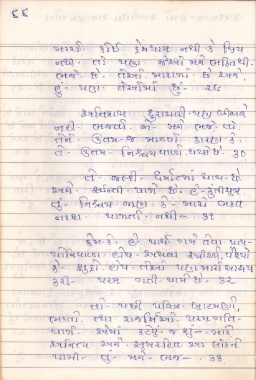 ૬૬
મારાં કોઈ દ્વેષપાત્ર નથી કે પ્રિય
નથી. તો પણ જેઓ મને ભક્તિથી
ભજે છે. તેઓ મારામાં છે અને
હું પણ તેઓમાં છું - ૨૯
અતિશય દુરાચારી પણ બીજાને
નહીં ભજતાં જો મને ભજે તો
તેને ઉત્તમ જ માનવો કારણ કે
તે ઉત્તમ નિશ્ચયવાળો થયો છે. ૩૦
તે જલ્દી ધર્માત્મા થાય છે
અને શાન્તી પામે છે. હે કુંતીપુત્ર
તું નિશ્ચય જાણ કે મારો ભક્ત
નાશ પામતો નથી - ૩૧
કેમ કે હે પાર્થ ગમે તેવા પાપ
યોનિવાળા હોય અથવા સ્ત્રીઓ, વૈશ્યો
કે શુદ્રો હોય તેઓ પણ મારો આશ્રય
કરી પરમ ગતી પામે છે. ૩૨
તો પછી પવિત્ર બ્રાહ્મણો,
ભક્તો તથા રાજર્ષિઓ પરમગતિ
પામે એમાં કહેવું જ શું - માટે
અનિત્ય અને સુખરહિત આ લોકને
પામી તું મને ભજ - ૩૩